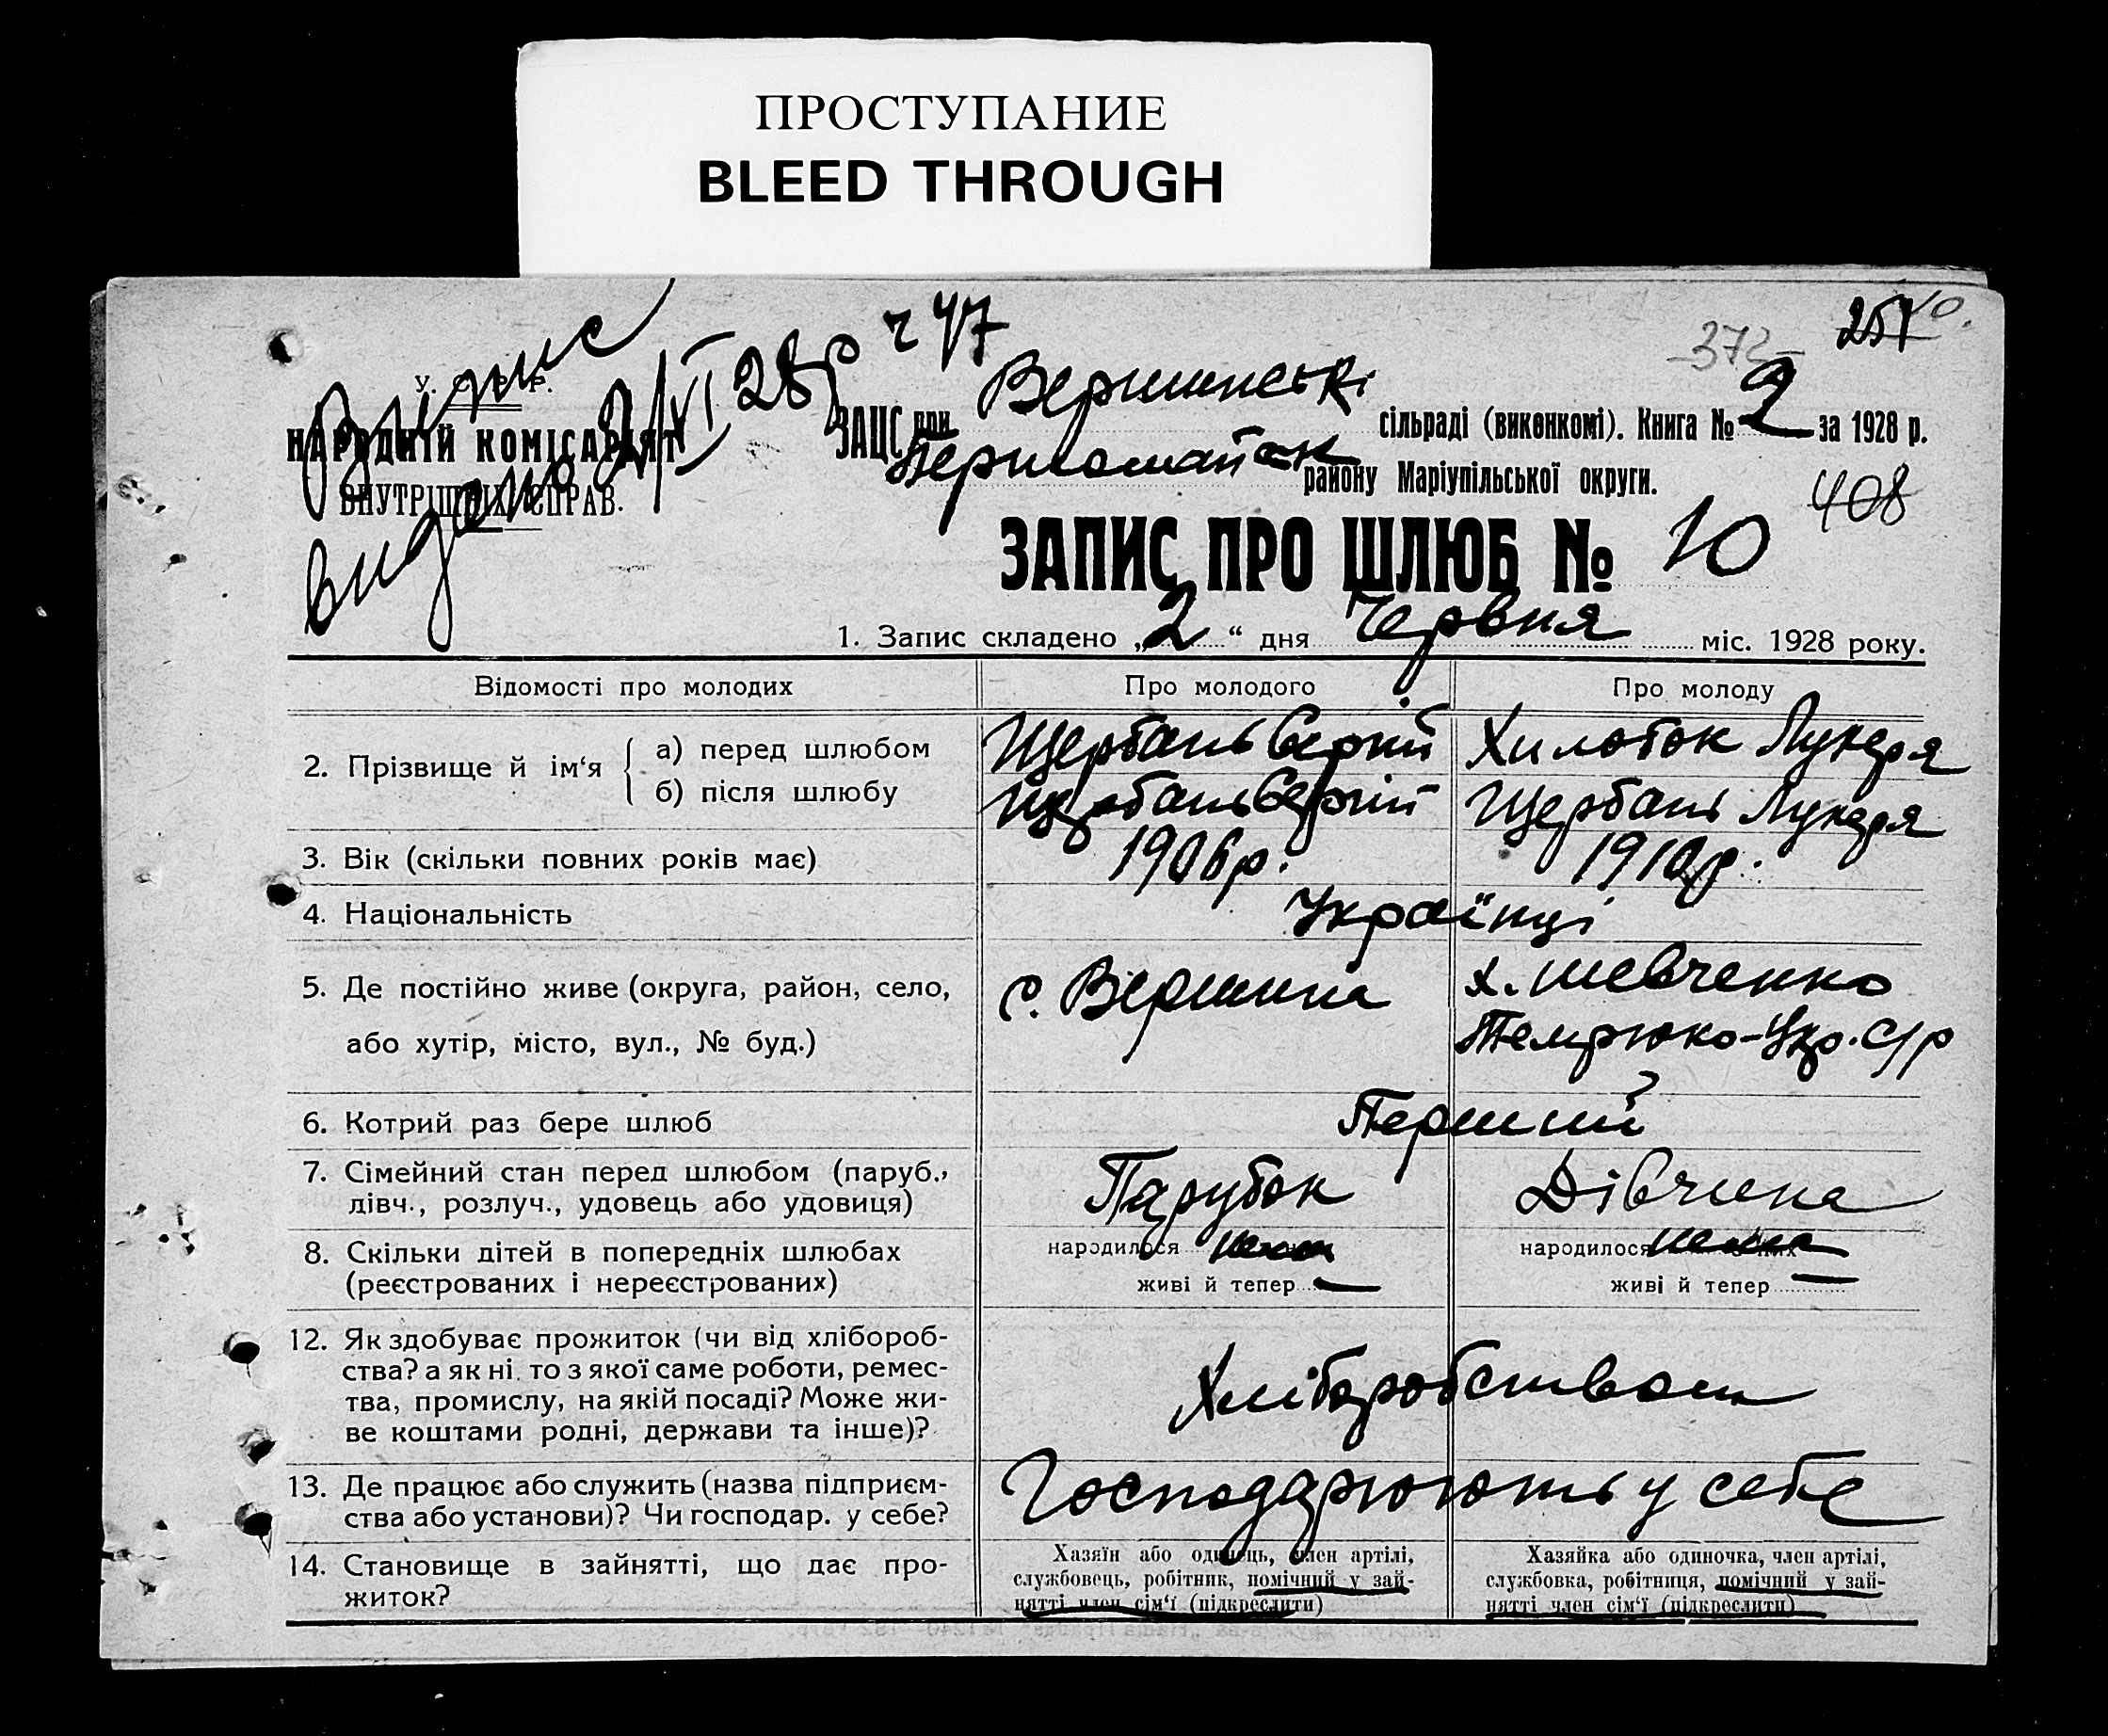 ПРОСТУПАНИЕ
BLEED THROUGH
ч 47
373
257
10.
Випис
видано 2/VI 28р
У. С. Р. Р.
НАРОДНІЙ КОМІСАРІЯТ
ВНУТРІШНІХ СПРАВ.
ЗАЦС при Вершинські сільраді (виконкомі). Книга № 2 за 1928 р.
Першомайськ району Маріупільської округи.
408
ЗАПИС ПРО ШЛЮБ № 10
1. Запис складено „2“ дня Червня міс. 1928 року.
Відомості про молодих Про молодого Про молоду
2. Прізвище й ім‘я { а) перед шлюбом Щербань Сергій Хилоток Лукеря
б) після шлюбу Щербань Сергій Щербань Лукеря
3. Вік (скільки повних років має) 1906р. 1910р.
4. Національність Українці
5. Де постійно живе (округа, район, село, с. Вершина х. Шевченко
або хутір, місто, вул., № буд.) Темрюко-Укр. С/р
6. Котрий раз бере шлюб Перший
7. Сімейний стан перед шлюбом (паруб., Парубок Дівчина
дівч., розлуч., удовець або удовиця)
8. Скільки дітей в попередніх шлюбах народилося нема народилося нема
(реєстрованих і нереєстрованих) живі й тепер — живі й тепер —
12. Як здобуває прожиток (чи від хлібороб-
ства? а як ні, то з якої саме роботи, ремес- Хліборобством
тва, промислу, на якій посаді? Може жи-
ве коштами родні, держави та інше)?
13. Де працює або служить (назва підприєм- Господарюють у себе
ства або установи)? Чи господар. у себе?
14. Становище в зайнятті, що дає про- Хазяїн або одинець, член артілі, Хазяйка або одиночка, член артілі,
житок? службовець, робітник, помічний у зай- службовка, робітниця, помічний у зай-
нятті член сім‘ї (підкреслити) нятті член сім‘ї (підкреслити)